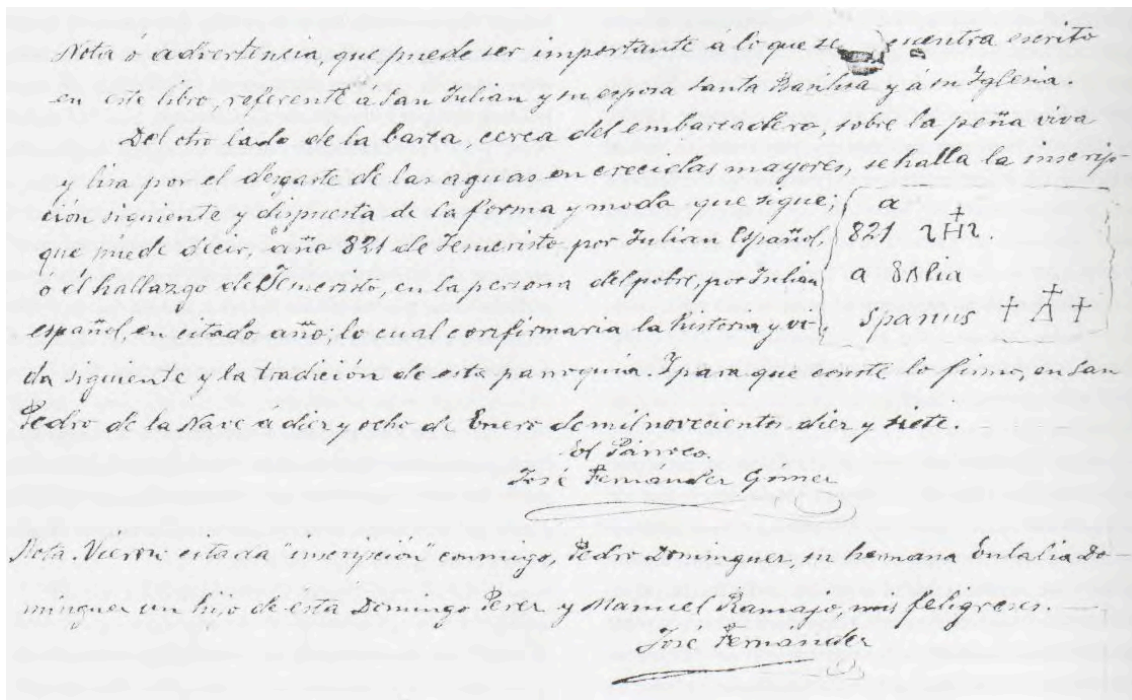 Nota ó advertencia, que puede ser importante á lo que se encuentra escrito
en este libro, referente á San Julian y su esposa Santa Basilisa y á su Iglesia.
Del otro lado de la barca, cerca del embarcadero, sobre la peña viva
y lisa por el desgaste de las aguas en crecidas mayores, se halla la inscrip-
ción siguiente y dispuesta de la forma y modo que sigue;
que puede decir, año 821 de Jemeristo, por Julian Español,
ó el hallazgo de Jemeristo, en la persona del pobre, por Julian
español, en citado año; lo cual confirmaria la historia y vi-
da siguiente y la tradición de esta parroquia. Y para que conste lo firmo, en San
Pedro de la Nave á diez y ocho de Enero de mil novecientos diez y siete.
a
821
a
spanus
El Párroco.
José Fernández Gomez
Nota. Vieron citada inscripción conmigo, Pedro Dominguez, su hermana Eulalia Do-
minguez un hijo de esta Domingo Perez y Manuel Ramajo, mis feligreses.
José Fernández